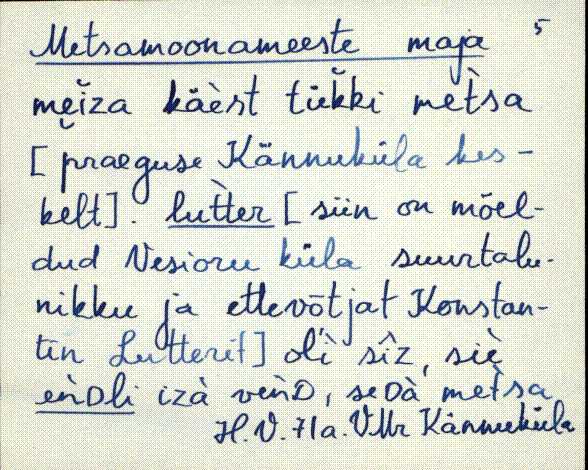 Metsamoonameeste maja 5
mẹ̆ĭza käèst tük̆ki met̀sa
[praeguse Kännuküla kes-
kelt]. lut̀ter [siin on mõel-
dud Vesioru küla suurtalu-
nikku ja ettevõtjat Konstan-
tin Lutterit] oĺì sîz, siè
eǹDli izà veǹD, seDà met̀sa
H.V. 71a. VMr Kännuküla